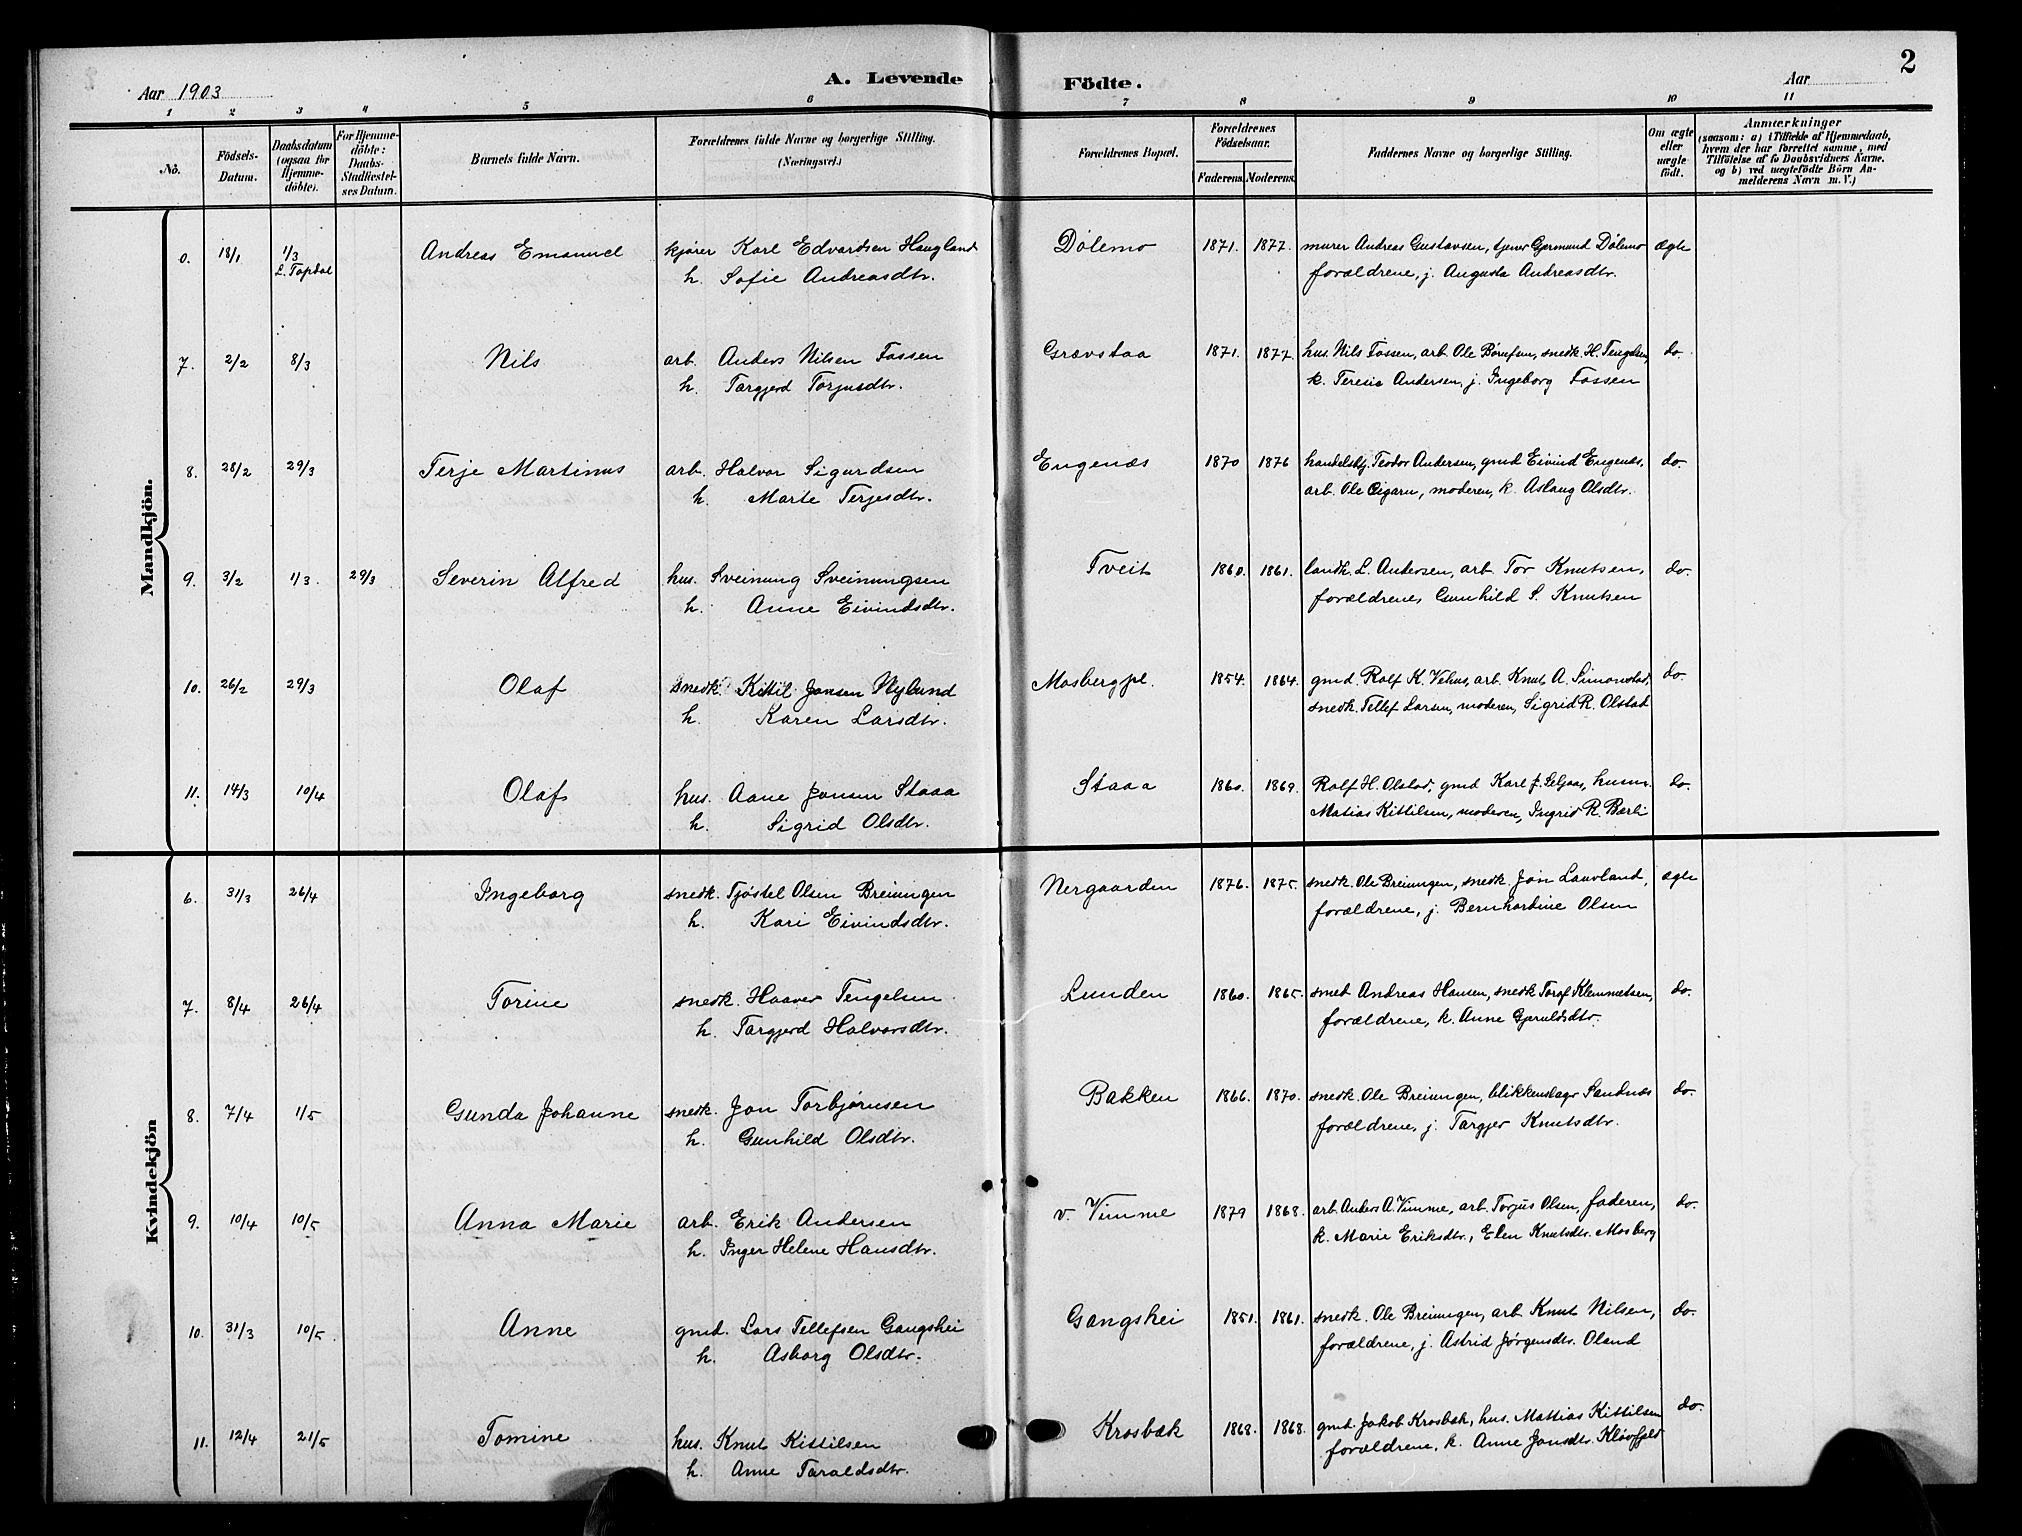 2
A. Levende Födte.
Aar 1903
Aar
1 2 3 4 5 6 7 8 9 10 11
No.
Födsels-Datum.
Daabsdatum (ogsaa for Hjemmedöbte).
For Hjemmedöbte: Daabs-Stadfæstelses Datum.
Barnets fulde Navn.
Forældrenes fulde Navne og borgerlige Stilling. (Næringsvei.)
Forældrenes Bopæl.
Forældrenes Födselsaar.
Faderens. Moderens.
Faddernes Navne og borgerlige Stilling.
Om ægte eller uægte födt.
Anmærkninger
(saasom: a) i Tilfælde af Hjemmedaab,
hvem der har forrettet samme, med
Tilföielse af to Daabsvidners Navne,
og b) ved uægtefödte Börn An-
melderens Navn m. V.)
Mandkjön.
0. 18/1 1/3 Andreas Emanuel kjører Karl Edvardsen Haugland Dölemo 1871. 1877. murer Andreas Gustavsen, tjener Gjermund Dölemo ægte
L. Topdal h. Sofie Andreasdtr. forældrene, j. Augusta Andreasdtr.
7. 2/2 8/3 Nils arb. Anders Nilsen Fossen Grævstaa 1871. 1877. hus. Nils Fossen, arb. Ole Börufsen, snedk. H. Tengelsen, do.
h. Targjerd Torjusdtr. k. Teresie Andersen, j. Ingeborg Fossen
8. 28/2 29/3 Terje Martinus arb. Halvor Sigurdsen Engenæs 1870 1876 handelsbj. Teodor Andersen, gmd Eivind Engenæs, do.
h. Marte Terjesdtr. arb. Ole Eigarn, moderen, k. Aslaug Olsdtr.
9. 3/2 1/3. 29/3 Severin Alfred hus. Sveinung Sveinungsen Tveit 1860. 1861. landh. L. Andersen, arb. Tor Knutsen, do.
h. Anne Eivindsdtr. forældrene, Gunhild S. Knutsen
10. 26/2 29/3 Olaf snedk. Kittil Jonsen Nylund Mosbergpl. 1854. 1864. gmd Rolf K. Vehus, arb. Knut A. Simonstad, do.
h. Karen Larsdtr. snedk. Tellef Larsen, moderen, Sigrid R. Olstad
11. 14/3 10/4 Olaf hus. Aane Jonsen Staaa Staaa 1860. 1869. Rolf H. Olstad, gmd Karl J. Seljaas, husm. do.
h. Sigrid Olsdtr. Matias Kittilsen, moderen, Ingrid R. Bærli
Kvindekjön
6. 31/3 26/4 Ingeborg snedk. Tjöstel Olsen Breiungen Nergaarden 1876. 1875. snedk. Ole Breiungen, snedk. Jon Lauvland, ægte
h. Kari Eivindsdtr. forældrene, j. Bernhardine Olsen
7. 8/4 26/4 Torine snedk. Haaver Tengelsen Lunden 1860. 1865. smed Andreas Hansen, snedk Torof Klemmetsen, do.
h. Targjerd Halvorsdtr. forældrene, k. Anne Gjeruldsdtr.
8. 7/4 1/5 Gunda Johanne snedk. Jon Torbjørnsen Bakken 1866. 1870. snedk Ole Breiungen, blikkenslager Sandnæs do.
h. Gunhild Olsdtr. forældrene, j. Targjer Knutsdtr.
9. 10/4 10/5 Anna Marie arb. Erik Andersen v. Vimme 1879 1868. arb. Anders A. Vimme, arb. Torjus Olsen, faderen, do.
h. Inger Helene Hansdtr. k. Marie Eriksdtr., Elen Knutsdtr. Mosberg
10. 31/3 10/5 Anne gmd. Lars Tellefsen Gangshei Gangshei 1851. 1861. snedk. Ole Breiungen, arb Knut Nilsen, do.
h. Asborg Olsdtr. forældrene, j. Astrid Jørgensdtr. Oland
11. 12/4 21/5 Tomine hus. Knut Kittilsen Krosbæk 1868. 1868. gmd. Jakob Krosbæk, hus. Mattias Kittilsen do.
h. Anne Taraldsdtr. forældrene, k. Anne Jonsdtr. Kløvfjeld